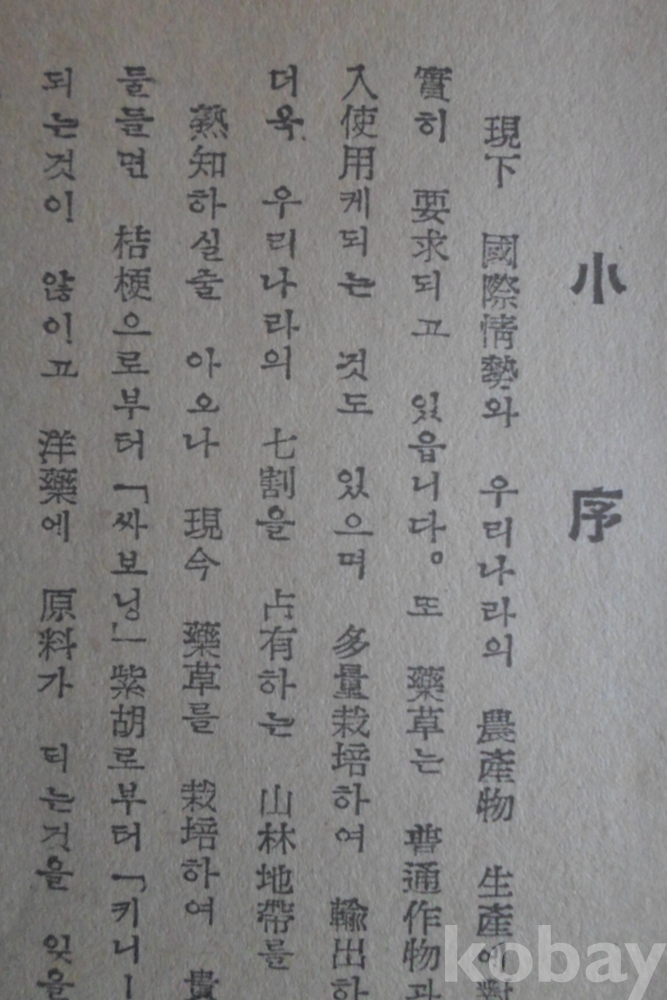 小序
現下 國際情勢와 우리나라의 農産物 生産에對
實히 要求되고 있읍니다。또 藥草는 普通作物과
入使用케되는 것도 있으며 多量栽培하여 輸出하
더욱 우리나라의 七割을 占有하는 山林地帶를
熟知하실줄 아오나 現今 藥草를 栽培하여 貴
들들면 桔梗으로부터「싸보닝」紫胡로부터「키니ー
되는것이 않이고 洋藥에 原料가 되는것을 잊을
kobay